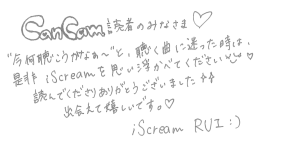 CanCam読者のみなさま♡
"今何聴こうかなぁ〜"と、聴く曲に迷った時は、
是非 iScreamを思い浮かべてください
読んでくださりありがとうございました
出会えて嬉しいです。♡
iScream RUI :)